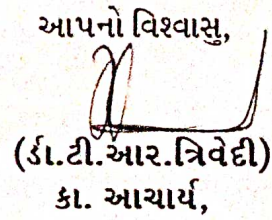 આપનો વિશ્વાસુ,
(ર્ડા.ટી.આર.ત્રિવેદી)
કા. આચાર્ય,